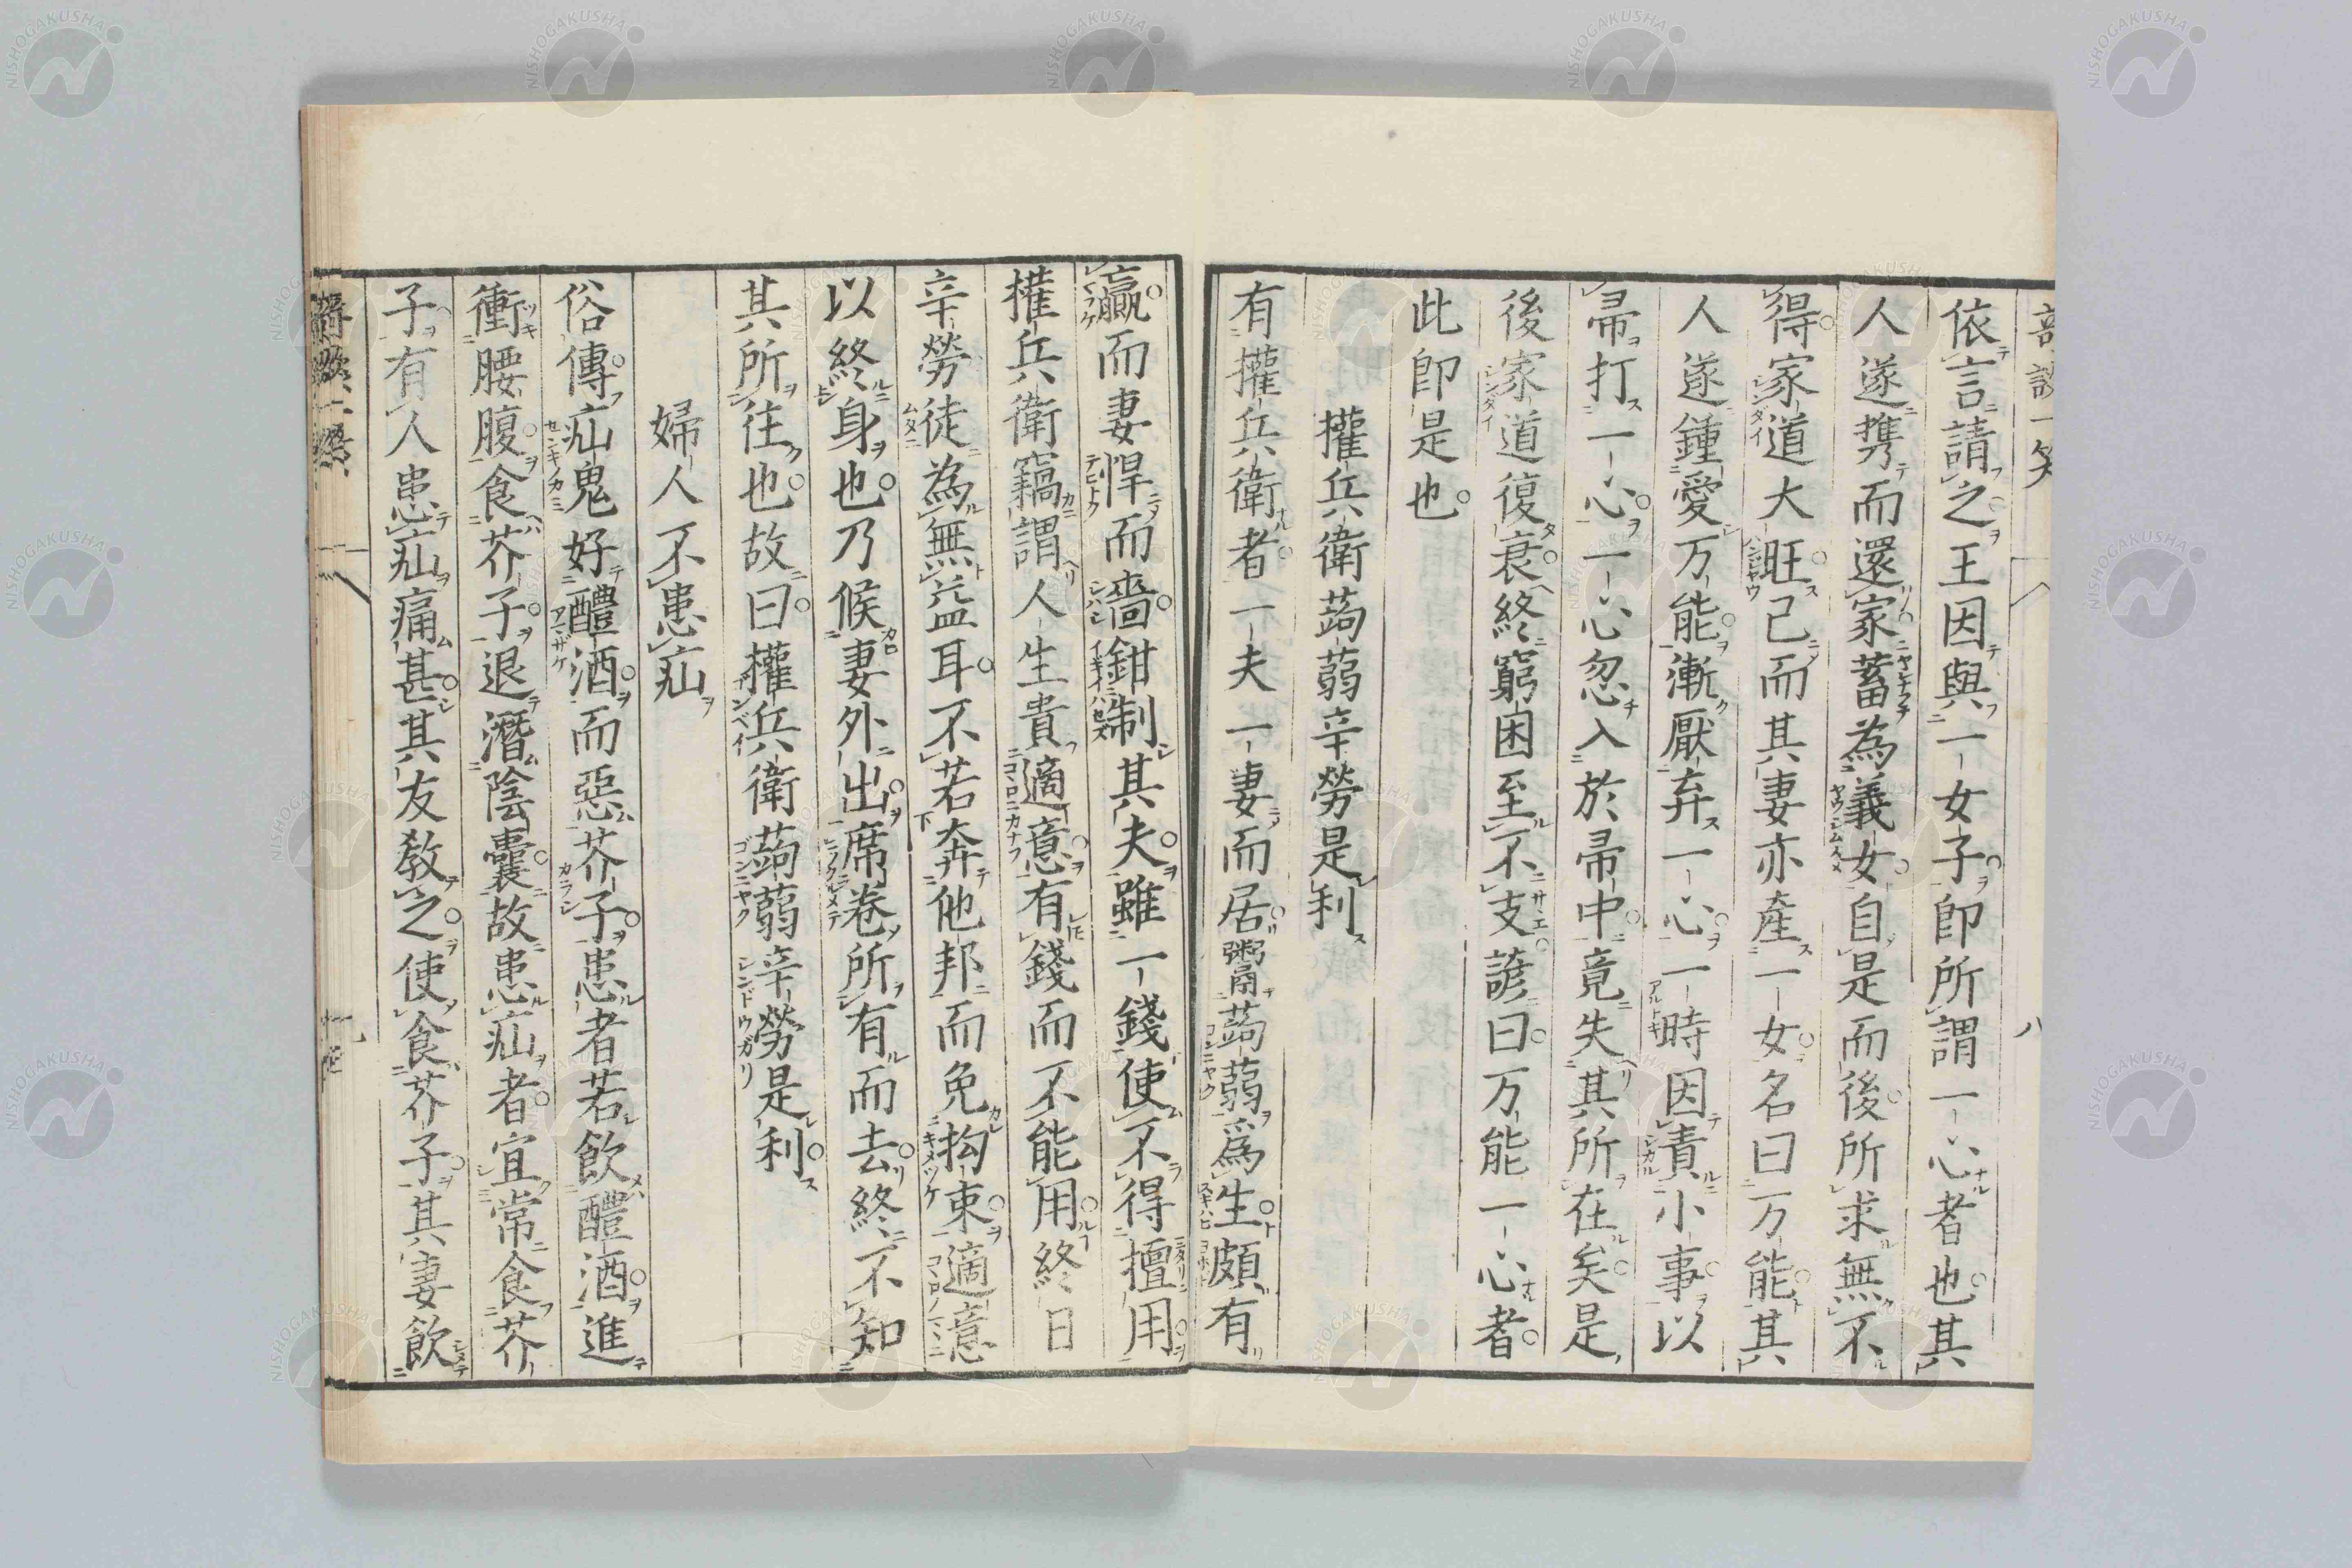 依言請之王因與一女子即所謂一心者也其
人遂携而還家蓄為義女自是而後所求無不
得家道大旺己而其妻亦產一女名曰万能其
人遂鍾愛万能漸厭弃一心一時因責小事以
帚打一心一心忽入於帚中竟失其所在矣是
後家道復衰終窮困至不支諺曰万能一心者
此即是也
權兵衛蒟蒻辛勞是利
有權兵衛者一夫一妻而居粥蒟蒻為生頗有
贏而妻悍而嗇鉗制其夫雖一錢使不得擅用
權兵衛竊謂人生貴適意有錢而不能用終日
辛勞徒為無益耳不若奔他邦而免拘束適意
以終身也乃候妻外出席卷所有而去終不知
其所往也故曰權兵衛蒟蒻辛勞是利
婦人不患疝
俗傳疝鬼好醴酒而惡芥子患者若飲醴酒進
衝腰腹食芥子退潛陰囊故患疝者宜常食芥
子有人患疝痛甚其友教之使食芥子其妻飲